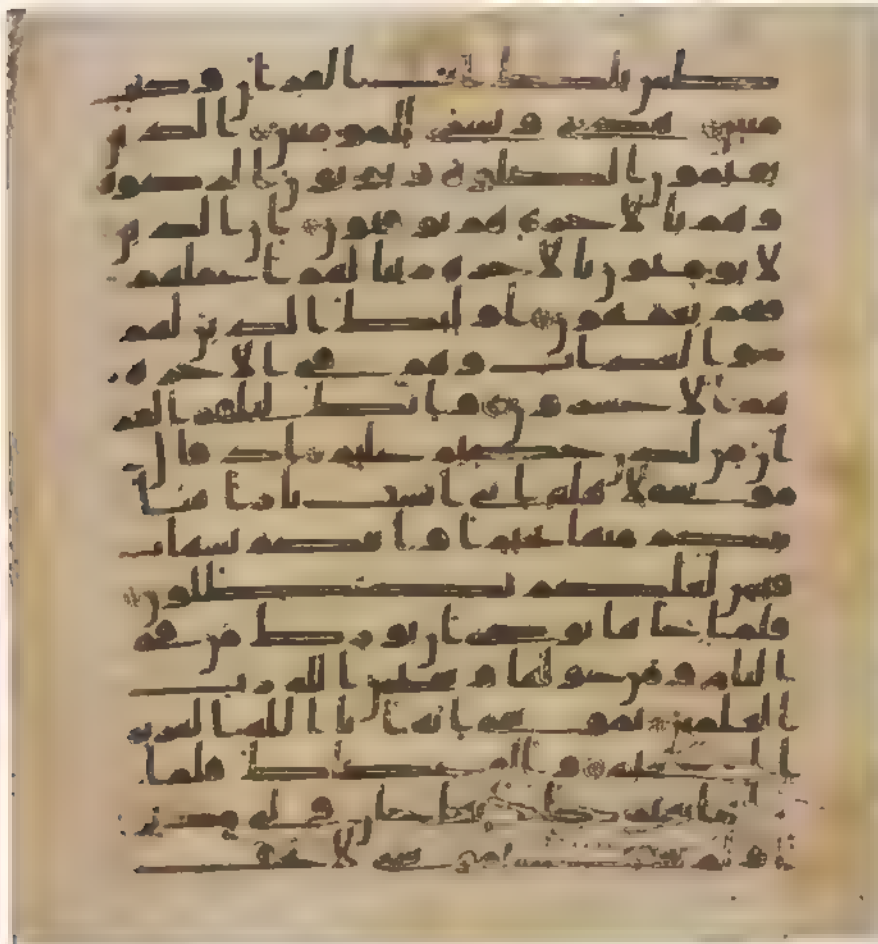 طس تلك ايت القران وكتب
مبين هدى وبشرى للمومنين الذين
يقيمون الصلوة ويوتون الزكوة
وهم بالاخرة هم يوقنون ان الذين
لا يومنون بالاخرة زينا لهم اعملهم
فهم يعمهون اوليك الذين لهم
سو العذاب وهم في الاخرة
هم الاخسرون وانك لتلقى القر
ان من لدن حكيم عليم اذ قال
موسى لاهله اني انست نارا سا
تيكم منها بخبر او اتيكم بشهاب
قبس لعلكم تصطلون
فلما جاها نودي ان بورك من في
النار ومن حولها وسبحن الله رب
العلمين يموسى انه انا الله العزيز
الحكيم والق عصاك فلما
راها تهتز كانها جان ولى مدبر
ا ولم يعقب يموسى لا تخف